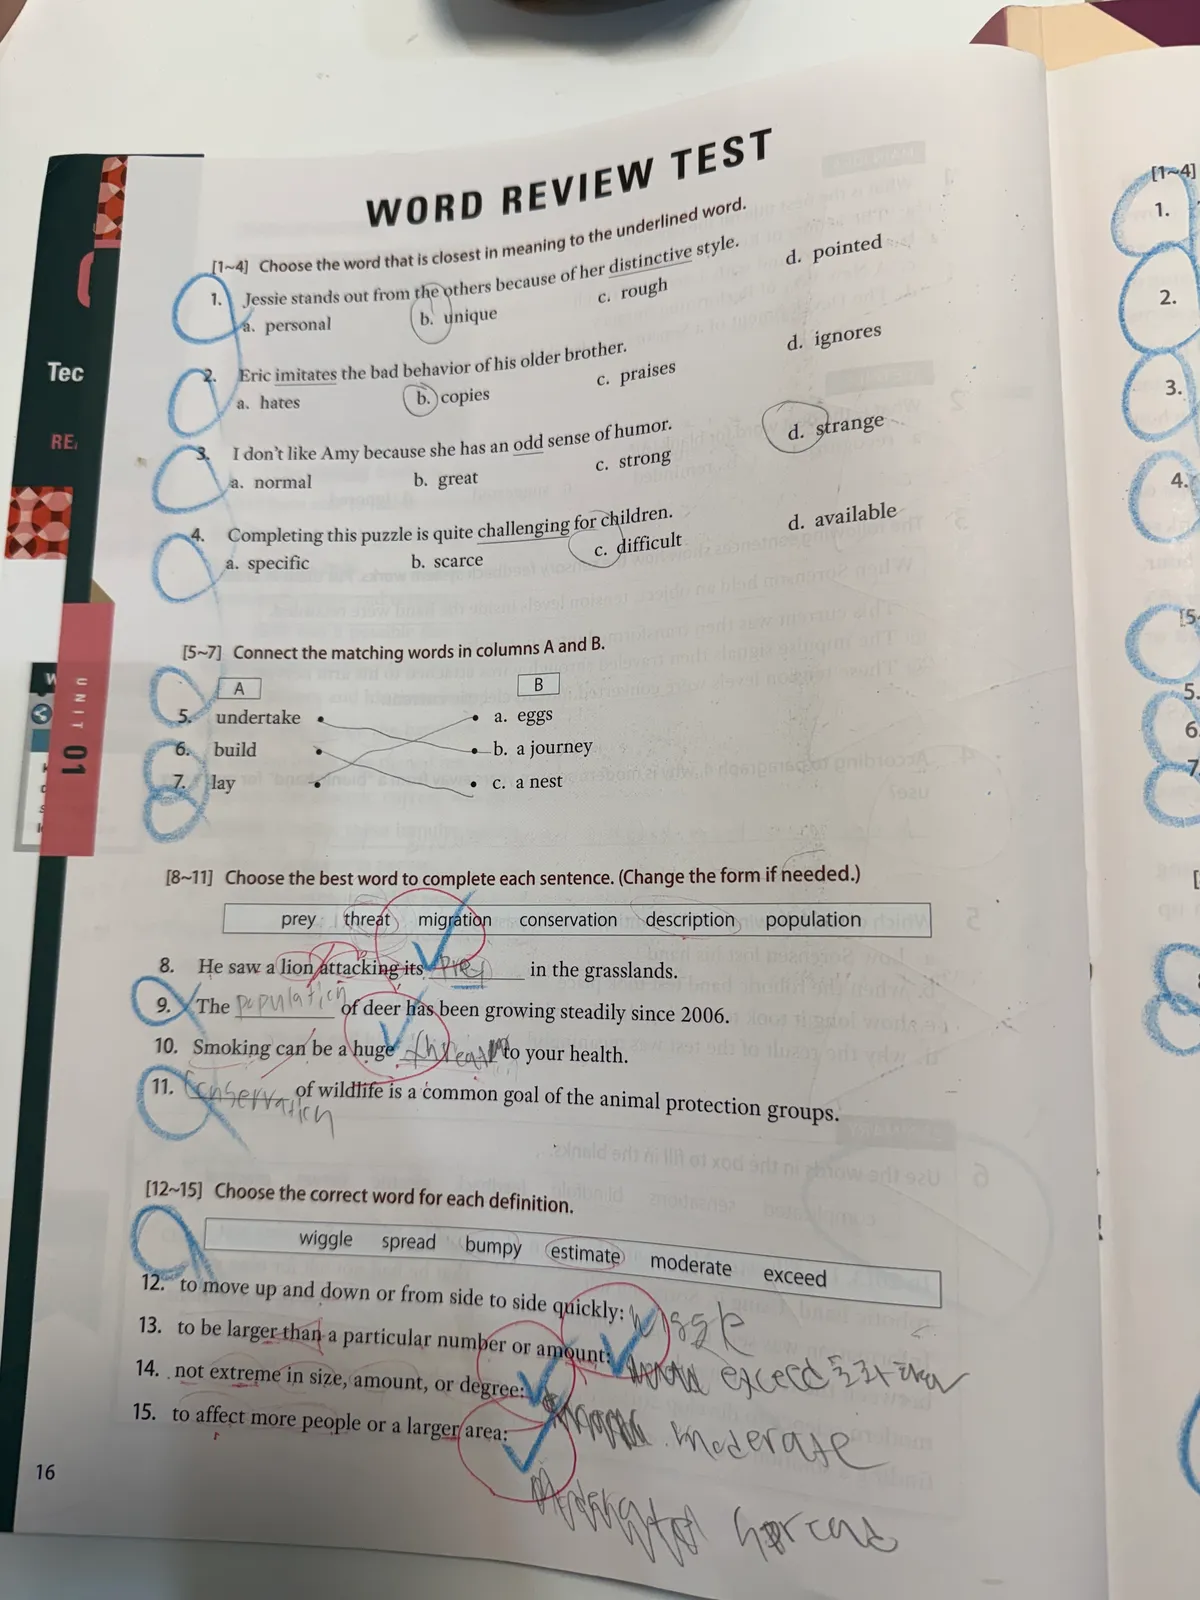 WORD REVIEW TEST
[1~4] Choose the word that is closest in meaning to the underlined word.
1. Jessie stands out from the others because of her distinctive style.
a. personal b. unique c. rough d. pointed
2. Eric imitates the bad behavior of his older brother.
a. hates b. copies c. praises d. ignores
3. I don't like Amy because she has an odd sense of humor.
a. normal b. great c. strong d. strange
4. Completing this puzzle is quite challenging for children.
a. specific b. scarce c. difficult d. available
[5~7] Connect the matching words in columns A and B.
A B
5. undertake a. eggs
6. build b. a journey
7. lay c. a nest
[8~11] Choose the best word to complete each sentence. (Change the form if needed.)
prey threat migration conservation description population
8. He saw a lion attacking its prey in the grasslands.
9. The population of deer has been growing steadily since 2006.
10. Smoking can be a huge threat to your health.
11. Conservation of wildlife is a common goal of the animal protection groups.
[12~15] Choose the correct word for each definition.
wiggle spread bumpy estimate moderate exceed
12. to move up and down or from side to side quickly: wiggle
13. to be larger than a particular number or amount: exceed
14. not extreme in size, amount, or degree: moderate
15. to affect more people or a larger area:
16
Tec
REA
UNIT 01
[1~4]
1.
2.
3.
4.
5.
6.
7.